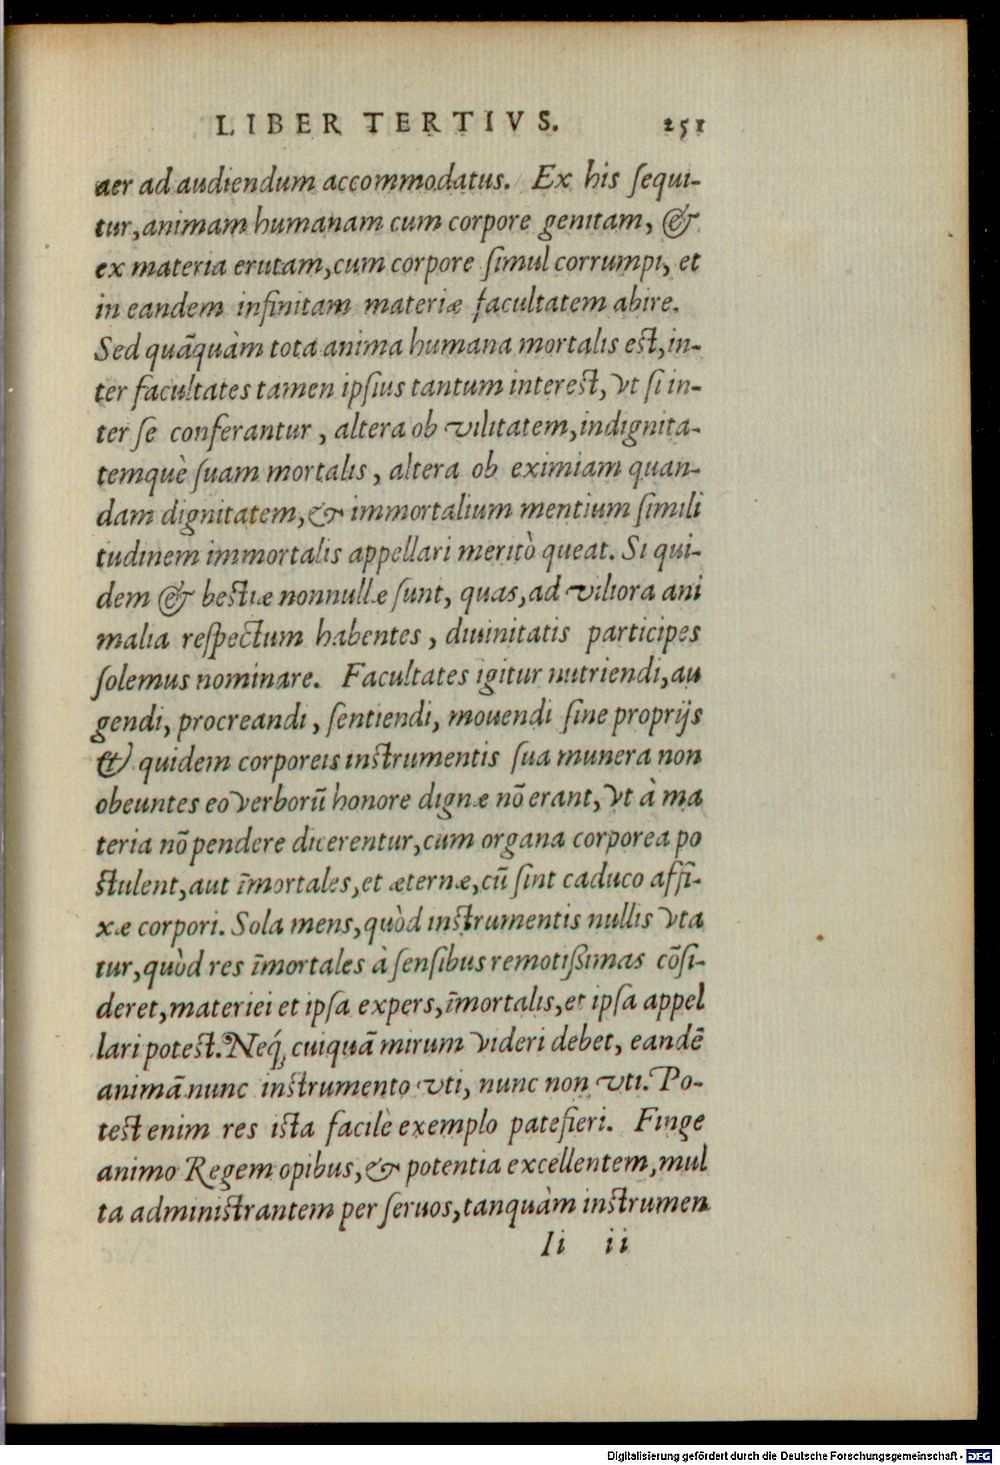 LIBER TERTIVS. 251
aer ad audiendum accommodatus. Ex his ſequi-
tur, animam humanam cum corpore genitam, &
ex materia erutam, cum corpore ſimul corrumpi, et
in eandem infinitam materiæ facultatem abire.
Sed quãquàm tota anima humana mortalis eſt, in-
ter facultates tamen ipſius tantum intereſt, vt ſi in-
ter ſe conferantur, altera ob vilitatem, indignita-
temquè ſuam mortalis, altera ob eximiam quan-
dam dignitatem, & immortalium mentium ſimili
tudinem immortalis appellari meritò queat. Si qui-
dem & beſtiæ nonnullæ ſunt, quas, ad viliora ani
malia reſpectum habentes, diuinitatis participes
ſolemus nominare. Facultates igitur nutriendi, au
gendi, procreandi, ſentiendi, mouendi ſine proprijs
& quidem corporeis inſtrumentis ſua munera non
obeuntes eo verborũ honore dignæ nõ erant, vt à ma
teria nõ pendere dicerentur, cum organa corporea po
ſtulent, aut ĩmortales, et æternæ, cũ ſint caduco affi-
xæ corpori. Sola mens, quòd inſtrumentis nullis vta
tur, quòd res ĩmortales à ſenſibus remotißimas cõſi-
deret, materiei et ipſa expers, ĩmortalis, et ipſa appel
lari poteſt. Neq́; cuiquã mirum videri debet, eandẽ
animã nunc inſtrumento vti, nunc non vti. Po-
teſt enim res iſta facilè exemplo patefieri. Finge
animo Regem opibus, & potentia excellentem, mul
ta adminiſtrantem per ſeruos, tanquàm inſtrumen
Ii ii
Digitalisierung gefördert durch die Deutsche Forschungsgemeinschaft - DFG